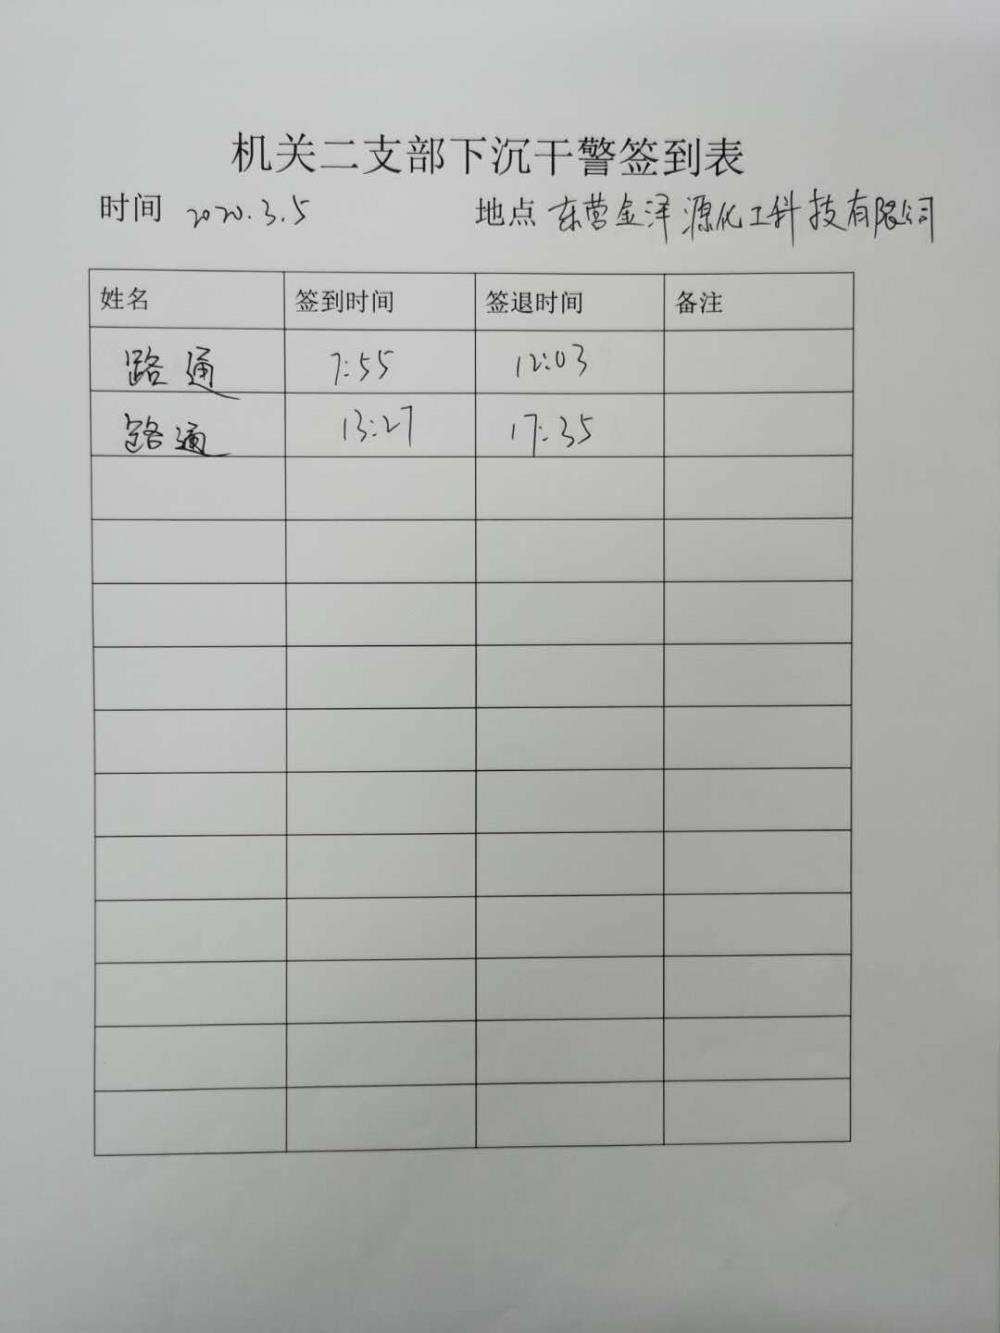 机关二支部下沉干警签到表
时间 2020.3.5 地点 东营金泽源化工科技有限公司
姓名 签到时间 签退时间 备注
路通 7:55 12:03
路通 13:27 17:35